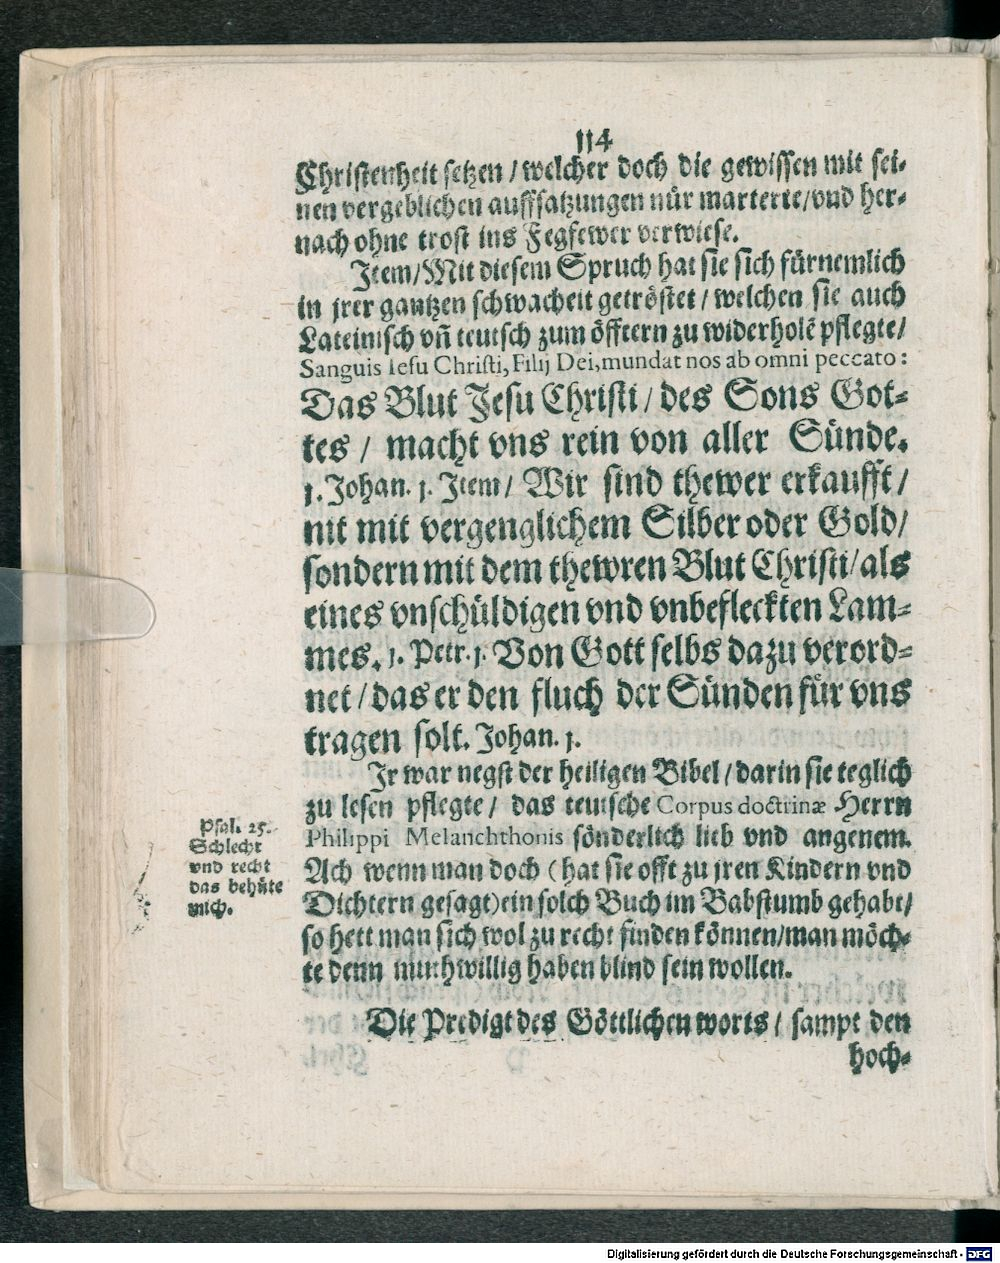 114
Christenheit setzen / welcher doch die gewissen mit sei-
nen vergeblichen auffsatzungen nür marterte / vnd her-
nach ohne trost ins Fegfewer verwiese.
Item / Mit diesem Spruch hat sie sich fürnemlich
in jrer gantzen schwacheit getröstet / welchen sie auch
Lateinisch vñ teutsch zum öfftern zu widerholẽ pflegte /
Sanguis Iesu Christi, Filij Dei, mundat nos ab omni peccato:
Das Blut Jesu Christi / des Sons Got-
tes / macht vns rein von aller Sünde.
1. Johan. 1. Item / Wir sind thewer erkaufft /
nit mit vergenglichem Silber oder Gold /
sondern mit dem thewren Blut Christi / als
eines vnschüldigen vnd vnbefleckten Lam-
mes. 1. Petr. 1. Von Gott selbs dazu verord-
net / das er den fluch der Sünden für vns
tragen solt. Johan. 1.
Ir war negst der heiligen Bibel / darin sie teglich
zu lesen pflegte / das teutsche Corpus doctrinæ Herrn
Philippi Melanchthonis sönderlich lieb vnd angenem.
Ach wenn man doch (hat sie offt zu jren Kindern vnd
Dichtern gesagt) ein solch Buch im Babstumb gehabt /
so hett man sich wol zu recht finden können / man möch-
te denn muthwillig haben blind sein wollen.
Psal. 25.
Schlecht
vnd recht
das behüte
mich.
Die Predigt des Göttlichen worts / sampt den
hoch-
Digitalisierung gefördert durch die Deutsche Forschungsgemeinschaft - DFG